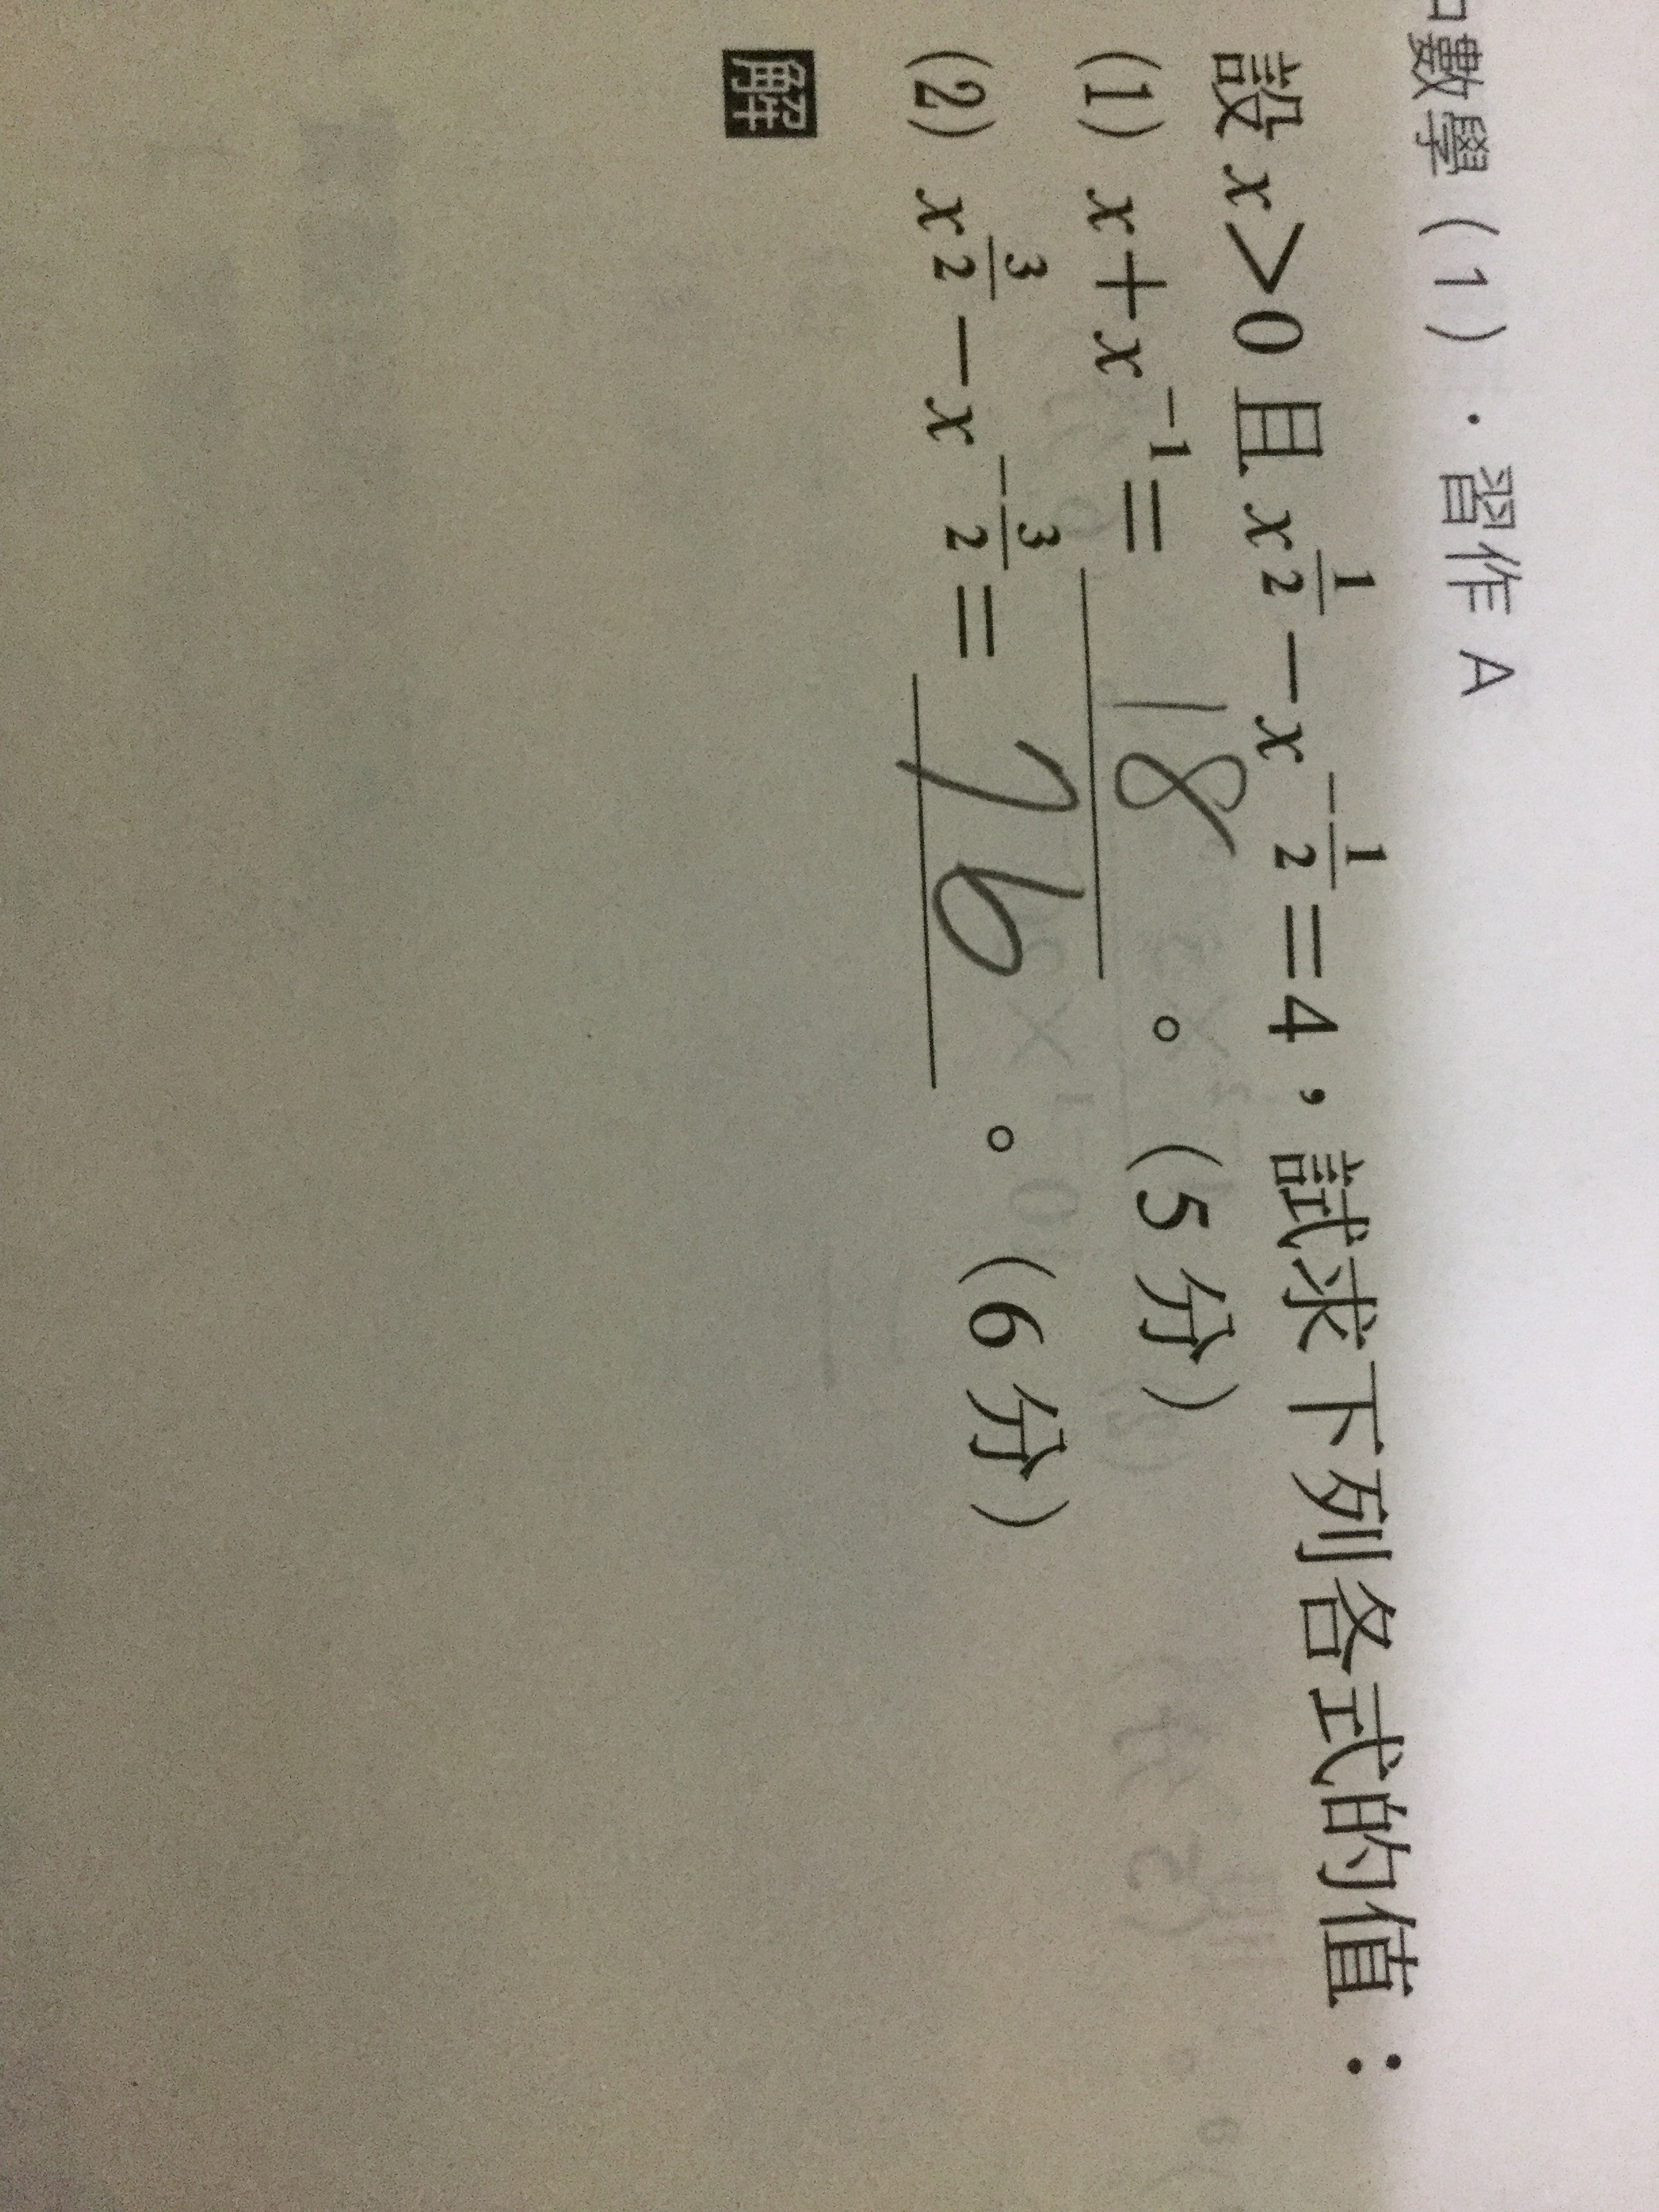 數學（1）．習作 A
設 x＞0 且 x^{\frac{1}{2}}－x^{-\frac{1}{2}}＝4，試求下列各式的值：
(1) x＋x^{-1}＝ 18 。（5 分）
(2) x^{\frac{3}{2}}－x^{-\frac{3}{2}}＝ 76 。（6 分）
解